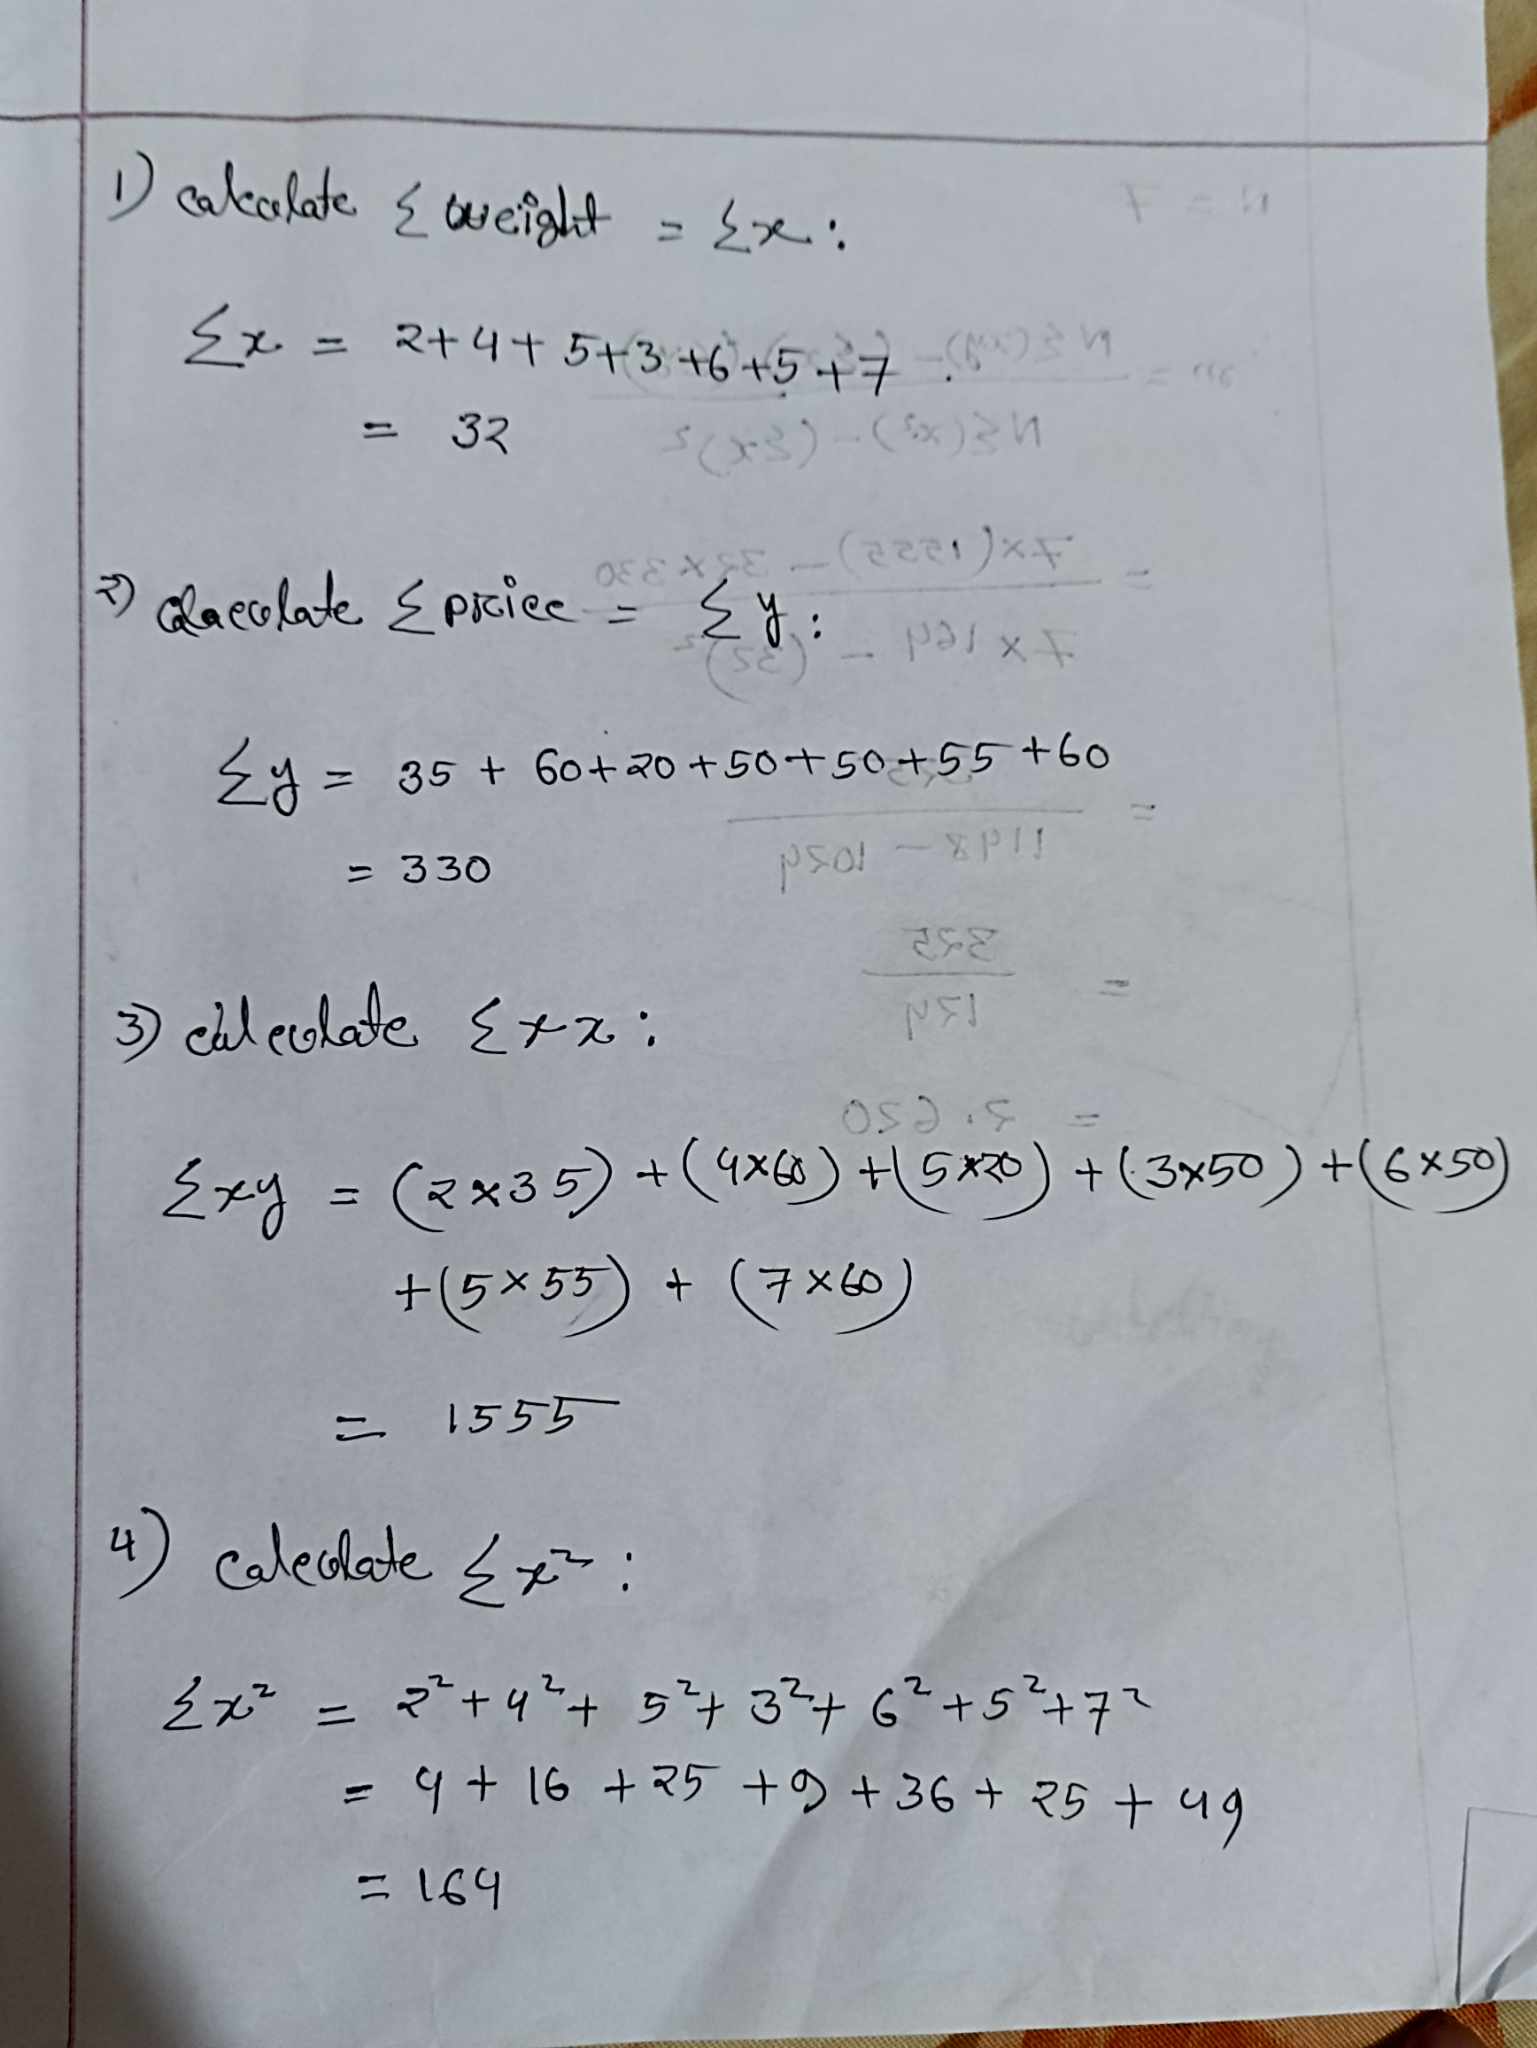 1) calculate Σ weight = Σx :
Σx = 2+4+5+3+6+5+7
= 32
2) Σ price = Σy :
Σy = 35 + 60+20+50+50+55+60
= 330
3) calculate Σxx :
Σxy = (2x35)+(4x60)+(5x20)+(3x50)+(6x50)
+(5x55) + (7x60)
= 1555
4) calculate Σx² :
Σx² = 2²+4²+5²+3²+6²+5²+7²
= 4+16+25+9+36+25+49
= 164